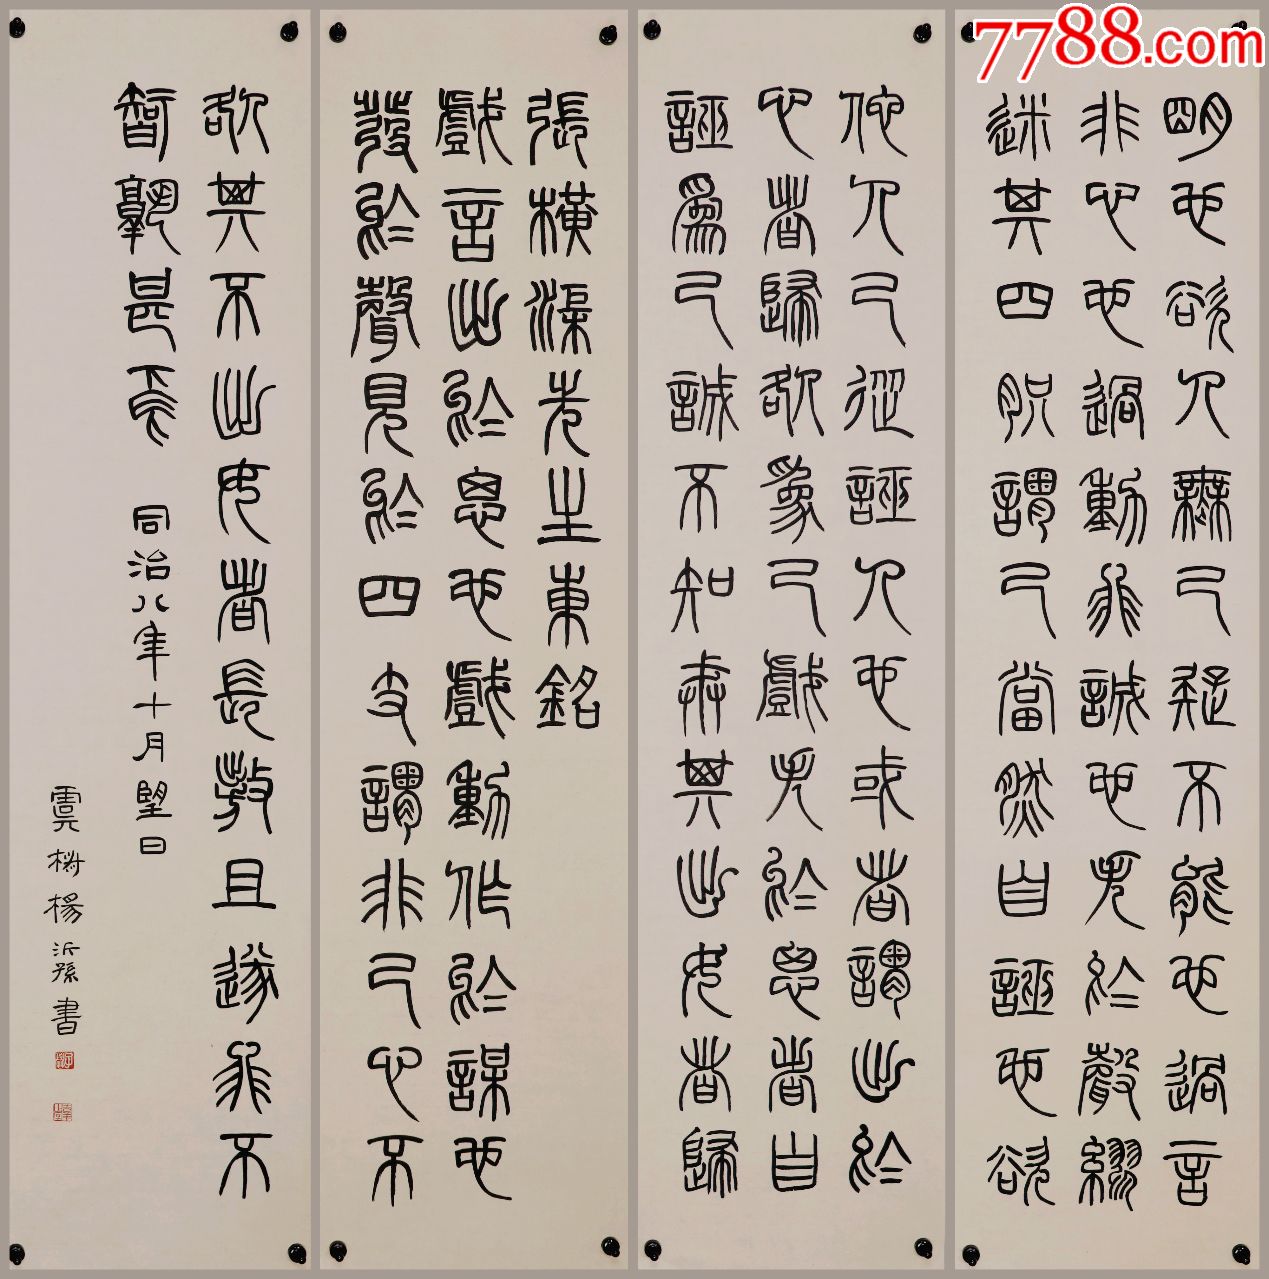 明也欲人無己疑不能也過言
非心也過動非誠也失於聲繆
迷其四胑謂己當然自誣也欲
他人己從誣人也或者謂出於
心者歸咎爲己戲失於思者自
誣爲己誠不知戒其出女者歸
張橫渠先生東銘
戲言出於思也戲動作於謀也
發於聲見於四支謂非己心不
咎其不出女者長敖且遂非不
智孰甚焉 同治八年十月望日
虞楊沂孫書
7788.com